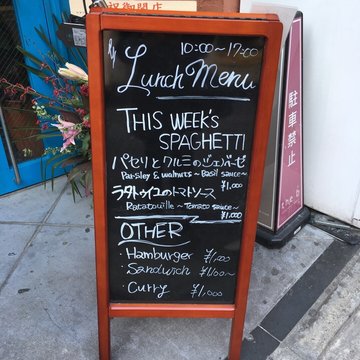 祝御開店
10:00~17:00
Lunch Menu
THIS WEEK'S
SPAGHETTI
パセリとクルミのジェノベーゼ
Parsley & walnuts ~ Basil sauce~
¥1,000
ラタトゥイユのトマトソース
Ratatouille ~ Tomato sauce~
¥1,000
OTHER
・Hamburger ¥1,200
・Sandwich ¥1,100~
・Curry ¥1,000
駐車禁止